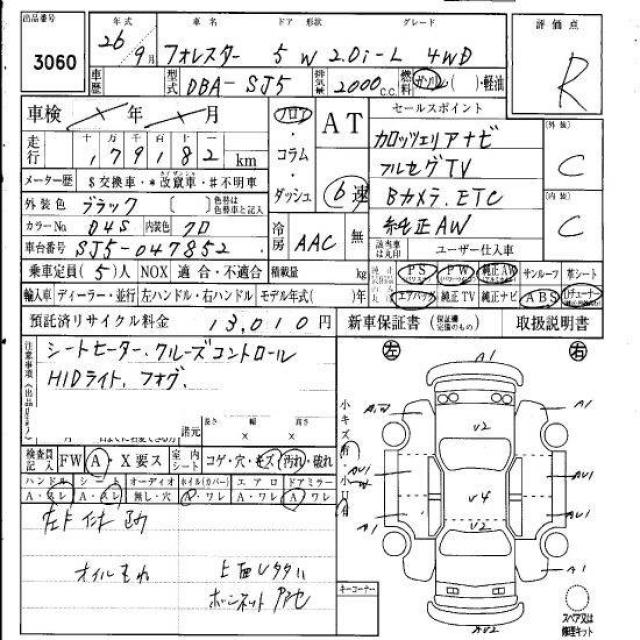 出品番号 年式 車名 ドア 形状 グレード 評価点
3060 26 9月 フォレスター 5 W 2.0i-L 4WD R
車歴 型式 DBA-SJ5 排気量 2000 c.c. 燃料 ガソリン( )・軽油
車検 年 月 フロア AT セールスポイント (外装) C
走行 十 万 千 百 十 一 179182 km ・コラム カロッツェリアナビ
メーター歴 $交換車・*改竄車・#不明車 ・ダッシュ 6速 フルセグTV (内装) C
外装色 ブラック ( ) 色替は色替車と記入 Bカメラ.ETC
カラーNo. D4S 内装色 クロ 冷房 AAC 無 純正AW
車台番号 SJ5-047852 該当車は丸印 ユーザー仕入車
乗車定員(5)人 NOX 適合・不適合 積載量 kg PS PW 純正AW サンルーフ 革シート
輸入車 ディーラー・並行 左ハンドル・右ハンドル モデル年式( )年 エアバッグ 純正TV 純正ナビ ABS 1チューナー
預託済リサイクル料金 13,010円 新車保証書 (保証欄完備のもの) 取扱説明書
注意事項(出品店申告) シートヒーター.クルーズコントロール
HIDライト.フォグ.
諸元 長さ 幅 高さ × ×
検査員記入 FW A・X要ス 室内シート コゲ・穴・キズ 汚れ・破れ
ハンドル シート オーディオ ホイル(カバー) エアロ ドアミラー
A・スレ A・スレ 無し・穴 A・ワレ A・ワレ A ワレ
オイルモレ
キーコーナー
左 右
小キズ有・小U有
A1 A1 A1 A1
AU1 AU1
V2 V4 V2
AU2
スペア又は修理キット